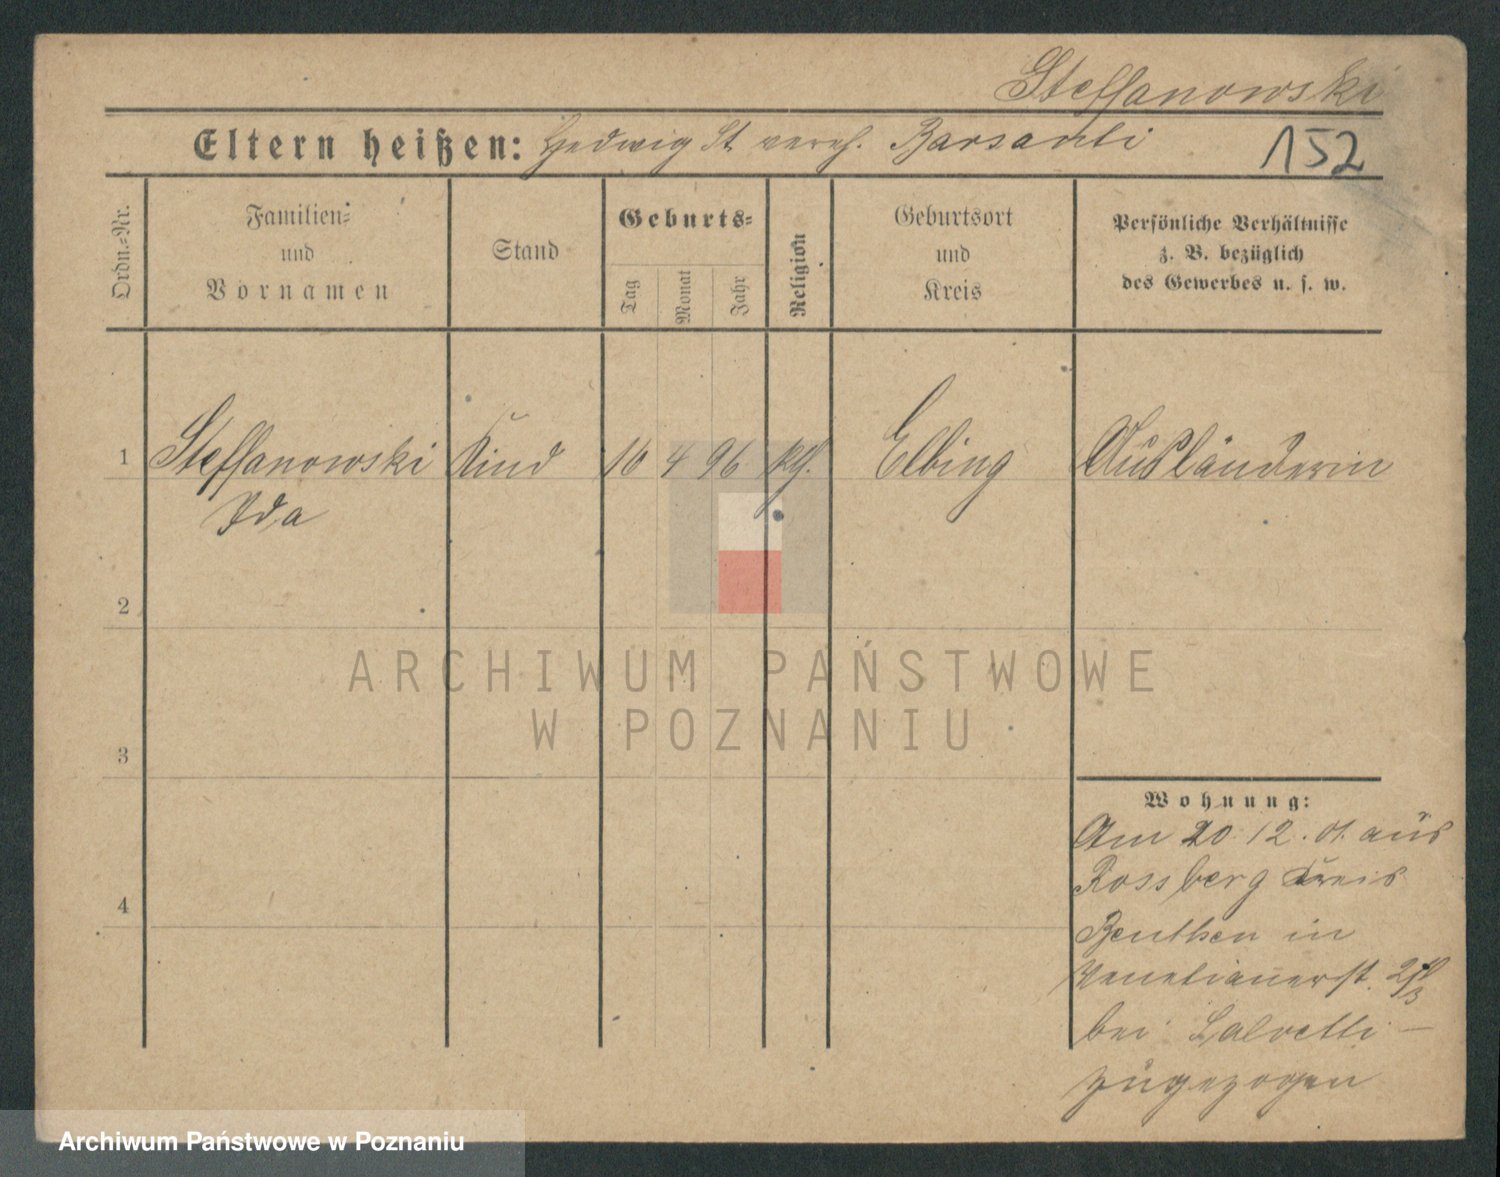 Steffanowski
Eltern heißen: Hedwig St. vereh. Barsanti
152
Ordn.-Nr.
Familien-
und
Vornamen
Stand
Geburts-
Tag
Monat
Jahr
Religion
Geburtsort
und
Kreis
Persönliche Verhältnisse
z. B. bezüglich
des Gewerbes u. s. w.
1 Steffanowski Kind 10 4 96 Elbing Ausländerin
Ida
2
3
4
Wohnung:
Am 20 12. 01. aus
Rossberg Kreis
Beuthen in
Venetianerst.
bei Salvetti –
zugezogen
ARCHIWUM PAŃSTWOWE
W POZNANIU
Archiwum Państwowe w Poznaniu